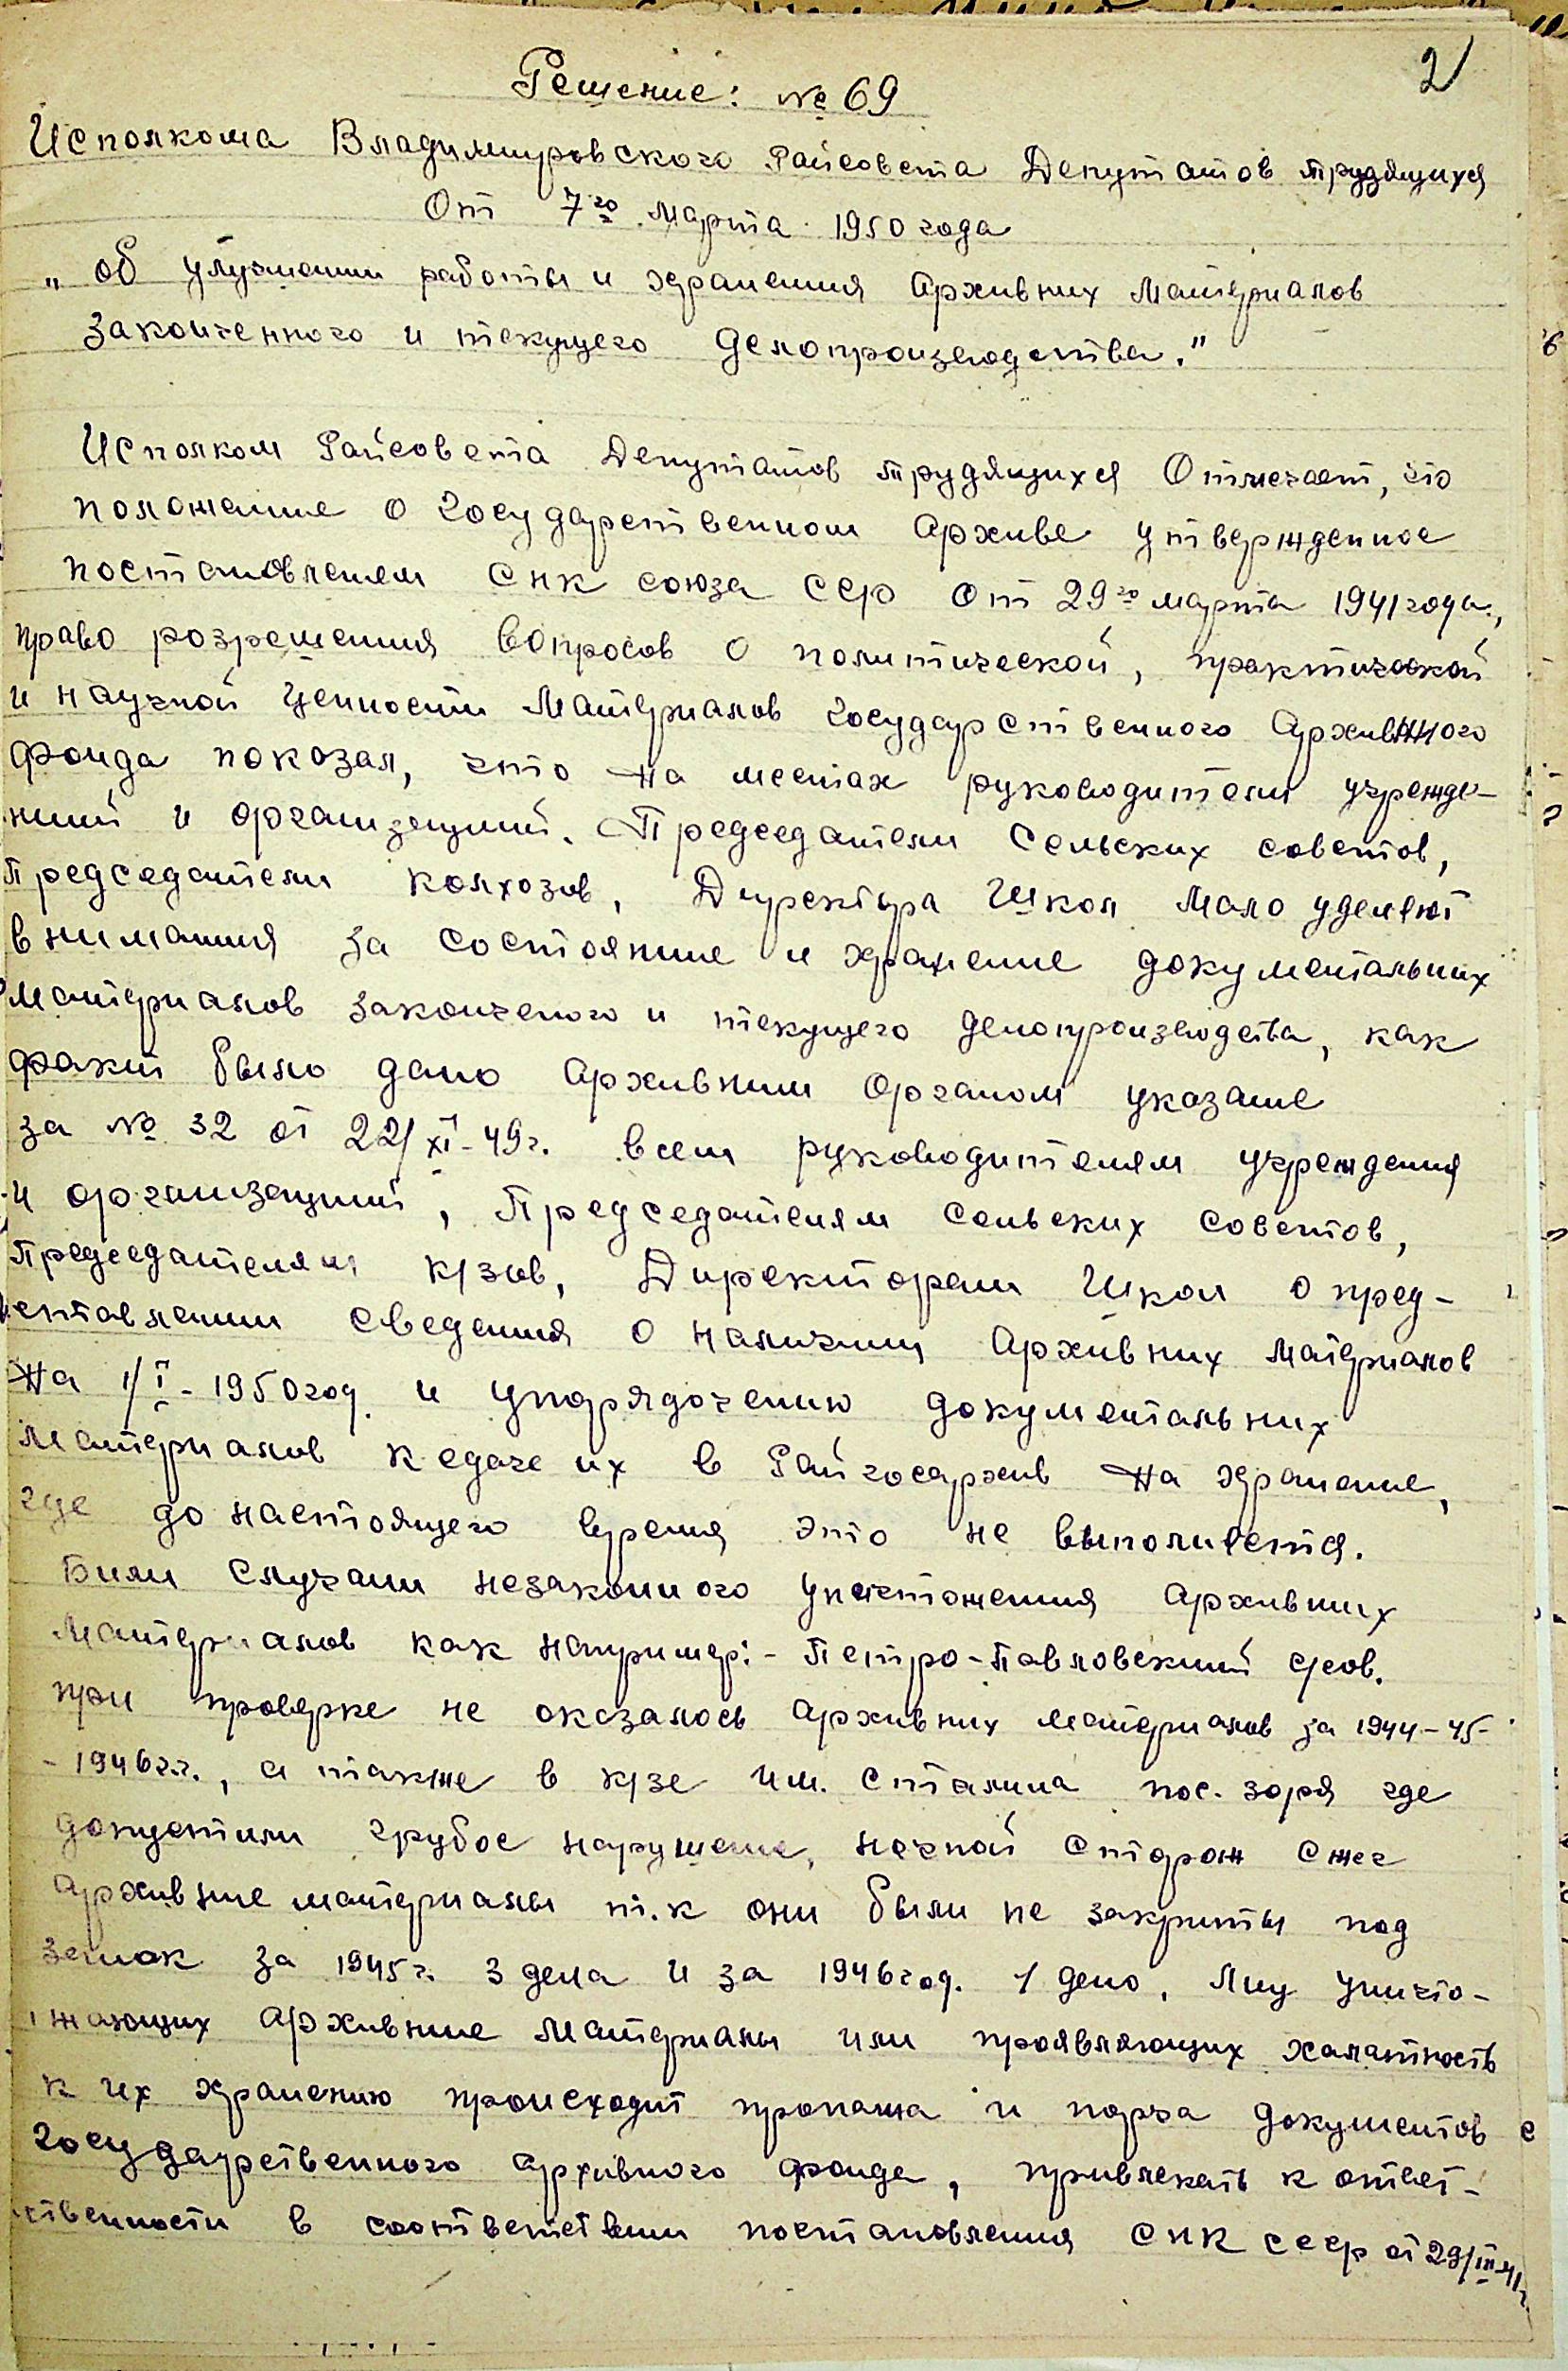 2
Решение: № 69
Исполкома Владимировского Райсовета Депутатов трудящихся
От 7го марта 1950 года
„ об улучшении работы и хранения Архивних Материалов
законченного и текущего делопроизводства."
Исполком Райсовета Депутатов трудящихся Отмечает, что
положение о государственном Архиве утвержденное
постановлением СНК союза ССР От 29го марта 1941 года.,
право розрешения вопросов о политической, практической
и научной ценности Материалов государственного Архивного
фонда показал, что на местах руководители учрежде-
ний и организаций. Председатели Сельских советов,
Председатели колхозов, Директора Школ мало уделяют
внимания за состояние и хранение документальних
материалов законченого и текущего делопроизводства, как
факт было дано Архивним Органом указание
за № 32 от 22/XI-49г. всем руководителям учреждения
и организаций, Председателям сельских советов,
Председателям к/зов, Директорам Школ о пред-
ставлении сведения о наличии Архивних материалов
на 1/I-1950 год и упорядочению документальних
материалов к сдаче их в Райгосархив на хранение,
где до настоящего время это не выполняется.
Били случаи незаконного уничтожения Архивних
Материалов как например:- Петро-Павловский с/сов.
при проверке не оказалось Архивних материалов за 1944-45-
- 1946 г.г., а также в к/зе им. Сталина пос. Заря где
допустили грубое нарушение, ночной сторож сжег
Архивние материалы т.к они были не закрыты под
замок за 1945 г. 3 дела и за 1946 год. 1 дело, Лиц уничто-
жающих Архивние Материалы или проявляющих халатность
к их хранению происходит пропажа и порча документов
государственного архивного фонда, привлекать к ответ-
ственности в соответствии постановления СНК СССР от 29/III-41г.